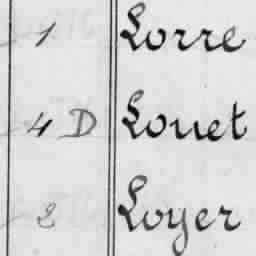 1 Lorre
4 D Louet
2 Loyer